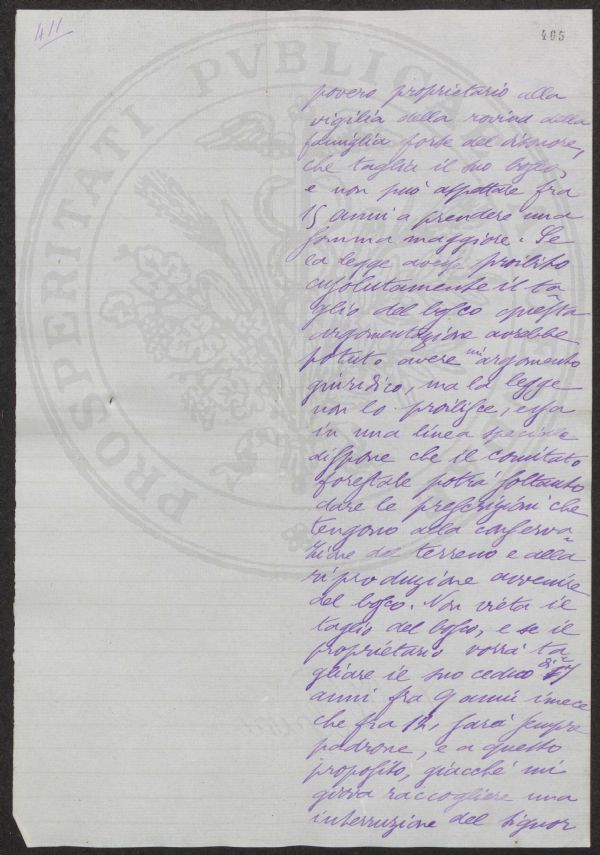 411
465
PROSPERITATI PVBLICAE
povero proprietario alla
vigilia della rovina della
famiglia forse del disonore,
che taglia il suo bosco,
e non può aspettare fra
15 anni a prendere una
somma maggiore. Se
la legge avesse proibito
assolutamente il ta
glio del bosco questa
argomentazione avrebbe
potuto avere un argomento
giuridico, ma la legge
non lo proibisce, essa
in una linea speciale
dispone che il comitato
forestale potrà soltanto
dare le prescrizioni che
tengono alla conserva-
zione del terreno e alla
riproduzione avvenire
del bosco. Non vieta il
taglio del bosco, e se il
proprietario vorrà ta-
gliare il suo ceduo di
anni fra 9 anni invece
che fra 12, sarà sempre
padrone, e a questo
proposito, giacché mi
giova raccogliere una
interruzione del signor